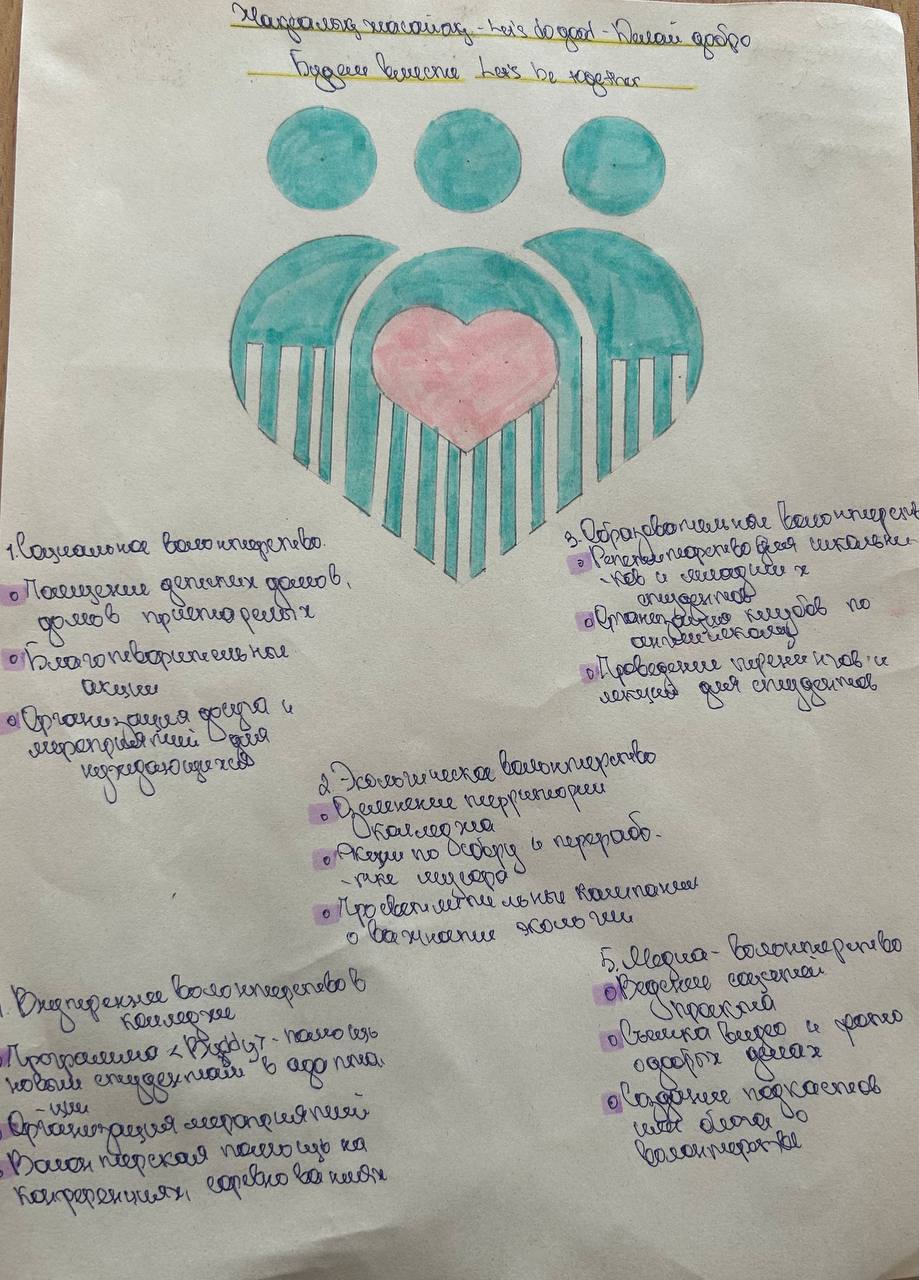 Жақсылық жасайық - Let's do good - Делай добро
Будем вместе Let's be together
1. Социальное волонтерство.
Посещение детских домов,
домов престарелых
Благотворительные
акции
Организация досуга и
мероприятий для
нуждающихся
3. Образовательное волонтерств
Репетиторство для школьни-
-ков и младших
студентов
Организация клубов по
английскому
Проведение тренингов и
лекций для студентов
2. Экологическое волонтерство
Озеленение территории
колледжа
Акции по сбору и перерабо-
-тке мусора
Просветительные кампании
о важности экологии
Внутреннее волонтерство в
колледже
Программа <Buddy> - помощь
новым студентам в адапта-
-ции
Организация мероприятий
Волонтерская помощь на
конференциях, соревнованиях
5. Медиа-волонтерство
Ведение соцсетей
проекта
Съемка видео и фото
о добрых делах
Создание подкастов
или блога о
волонтерстве